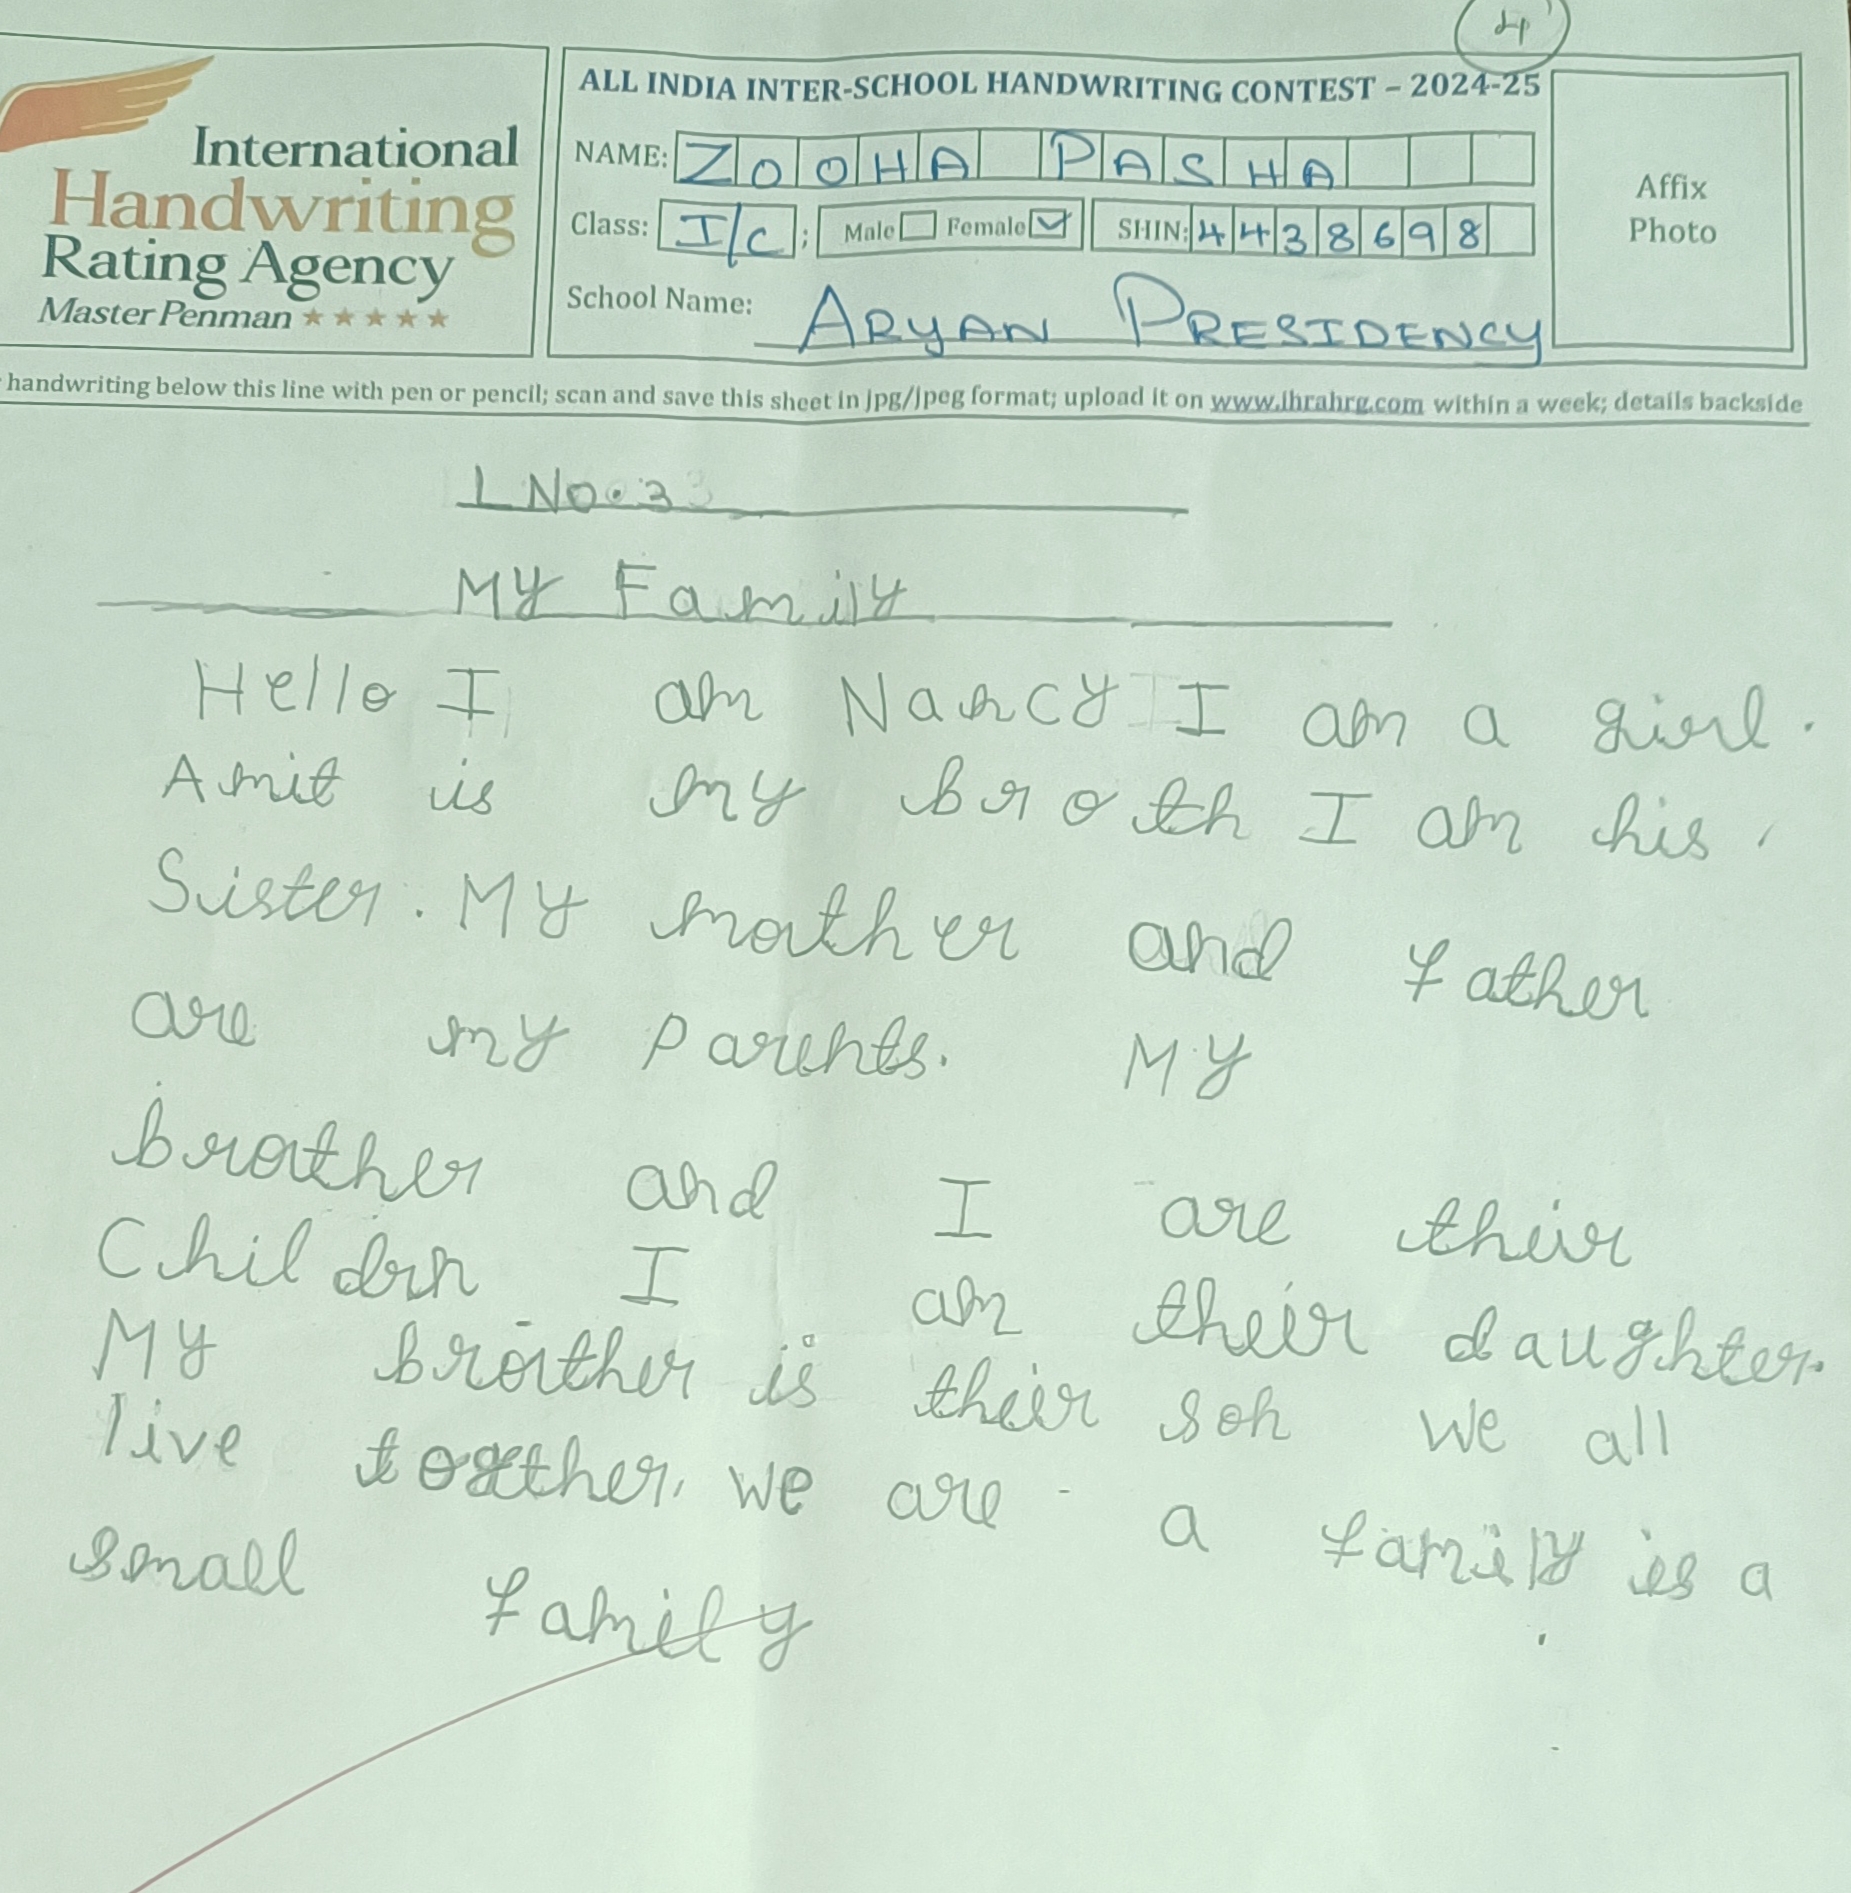 ALL INDIA INTER-SCHOOL HANDWRITING CONTEST – 2024-25
International
Handwriting
Rating Agency
Master Penman
NAME: ZOOHA PASHA
Class: I/C ; Male Female SHIN: 4438698
School Name: ARYAN PRESIDENCY
Affix
Photo
handwriting below this line with pen or pencil; scan and save this sheet in jpg/jpeg format; upload it on www.ihrahrg.com within a week; details backside
L No. 3
My Family
Hello I am Nancy I am a girl.
Amit is my broth I am his
Sister. My mother and father
are my Parents. My
brother and I are their
Childrn I am their daughter.
My brother is their son We all
live together. We are a family is a
small family